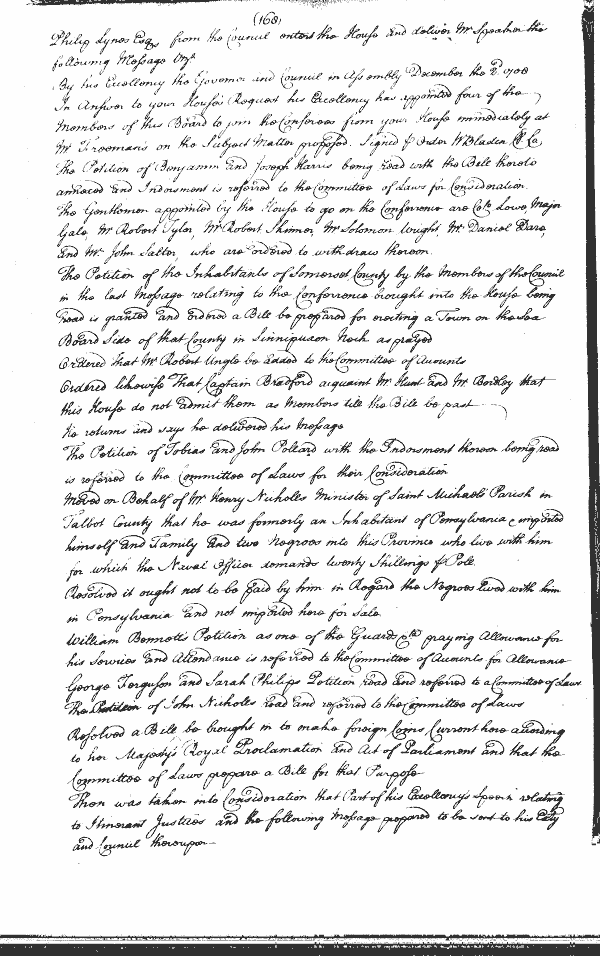 (168)
Philip Lynes Esqr from the Council enters the House and delivers Mr Speaker the
following Message Vizt
By his Excellency the Governor and Council in Assembly December the 2d 1708
In Answer to your House's Request his Excellency has appointed four of the
Members of this Board to join the Conferees from your House immediately at
Mr Freeman's on the Subject Matter proposed. Signed p Order W Bladen Cl Co
The Petition of Benjamin and Joseph Harris being read with the Bill thereto
annexed and Indorsment is referred to the Committee of Laws for Consideration.
The Gentlemen appointed by the House to go on the Conference are Colo Lowe, Major
Gale, Mr Robert Tyler, Mr Robert Skinner, Mr Solomon Wright, Mr Daniel
and Mr John Salter, who are ordered to withdraw thereon.
The Petition of the Inhabitants of Somerset County by the Members of the Council
in the last Message relating to the Conferrence brought into the House being
read is granted and ordered a Bill be prepared for erecting a Town on the Sea
Board Side of that County in Sinnipuxon Neck as prayed
Ordered that Mr Robert Ungle be added to the Committee of Accounts
Ordered likewise That Captain Bradford acquaint Mr Hunt and Mr Bordley that
this House do not admit them as Members till the Bill be past
He returns and says he delivered his Message
The Petition of Tobias and John Pollard with the Indorsment thereon being read
is referred to the Committee of Laws for their Consideration
Moved on Behalf of Mr Henry Nicholls Minister of Saint Michaels Parish in
Talbot County that he was formerly an Inhabitant of Pensylvania & imported
himself and Family and two Negroes into this Province who live with him
for which the Naval Officer demands twenty Shillings p Pole
Resolved it ought not to be paid by him in Regard the Negroes lived with him
in Pensylvania and not imported here for Sale
William Bennett's Petition as one of the Guards praying Allowance for
his Services and Attendance is referred to the Committee of Accounts for Allowance
George Ferguson and Sarah Philips Petition read and referred to a Committee of Laws
The Petition of John Nicholls read and referred to the Committee of Laws
Resolved a Bill be brought in to make foreign Coins Current here according
to her Majesty's Royal Proclamation and Act of Parliament and that the
Committee of Laws prepare a Bill for that Purpose
Then was taken into Consideration that Part of his Excellency's Speech relating
to Itinerant Justices and the following Message prepared to be sent to his Excy
and Council thereupon